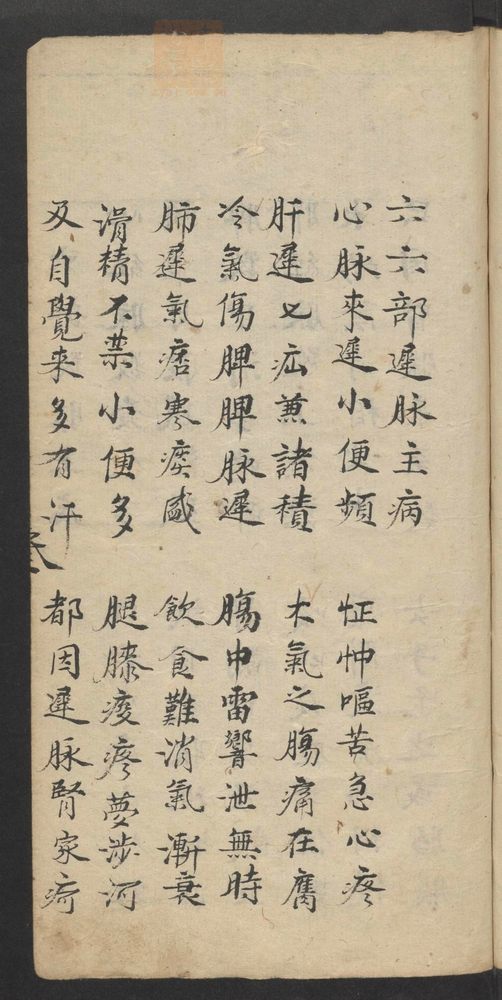 六六部遲脉主病
心脉來遲小便頻 怔忡嘔苦急心疼
肝遲七疝兼諸積 木氣之腸痛在腐
冷氣傷脾脾脉遲 腸中雷響泄無時
肺遲氣痞寒痰盛 飲食難消氣漸衰
滑精不禁小便多 腿膝痠疼夢涉河
及自覺来多有汗 都因遲脉腎家疴